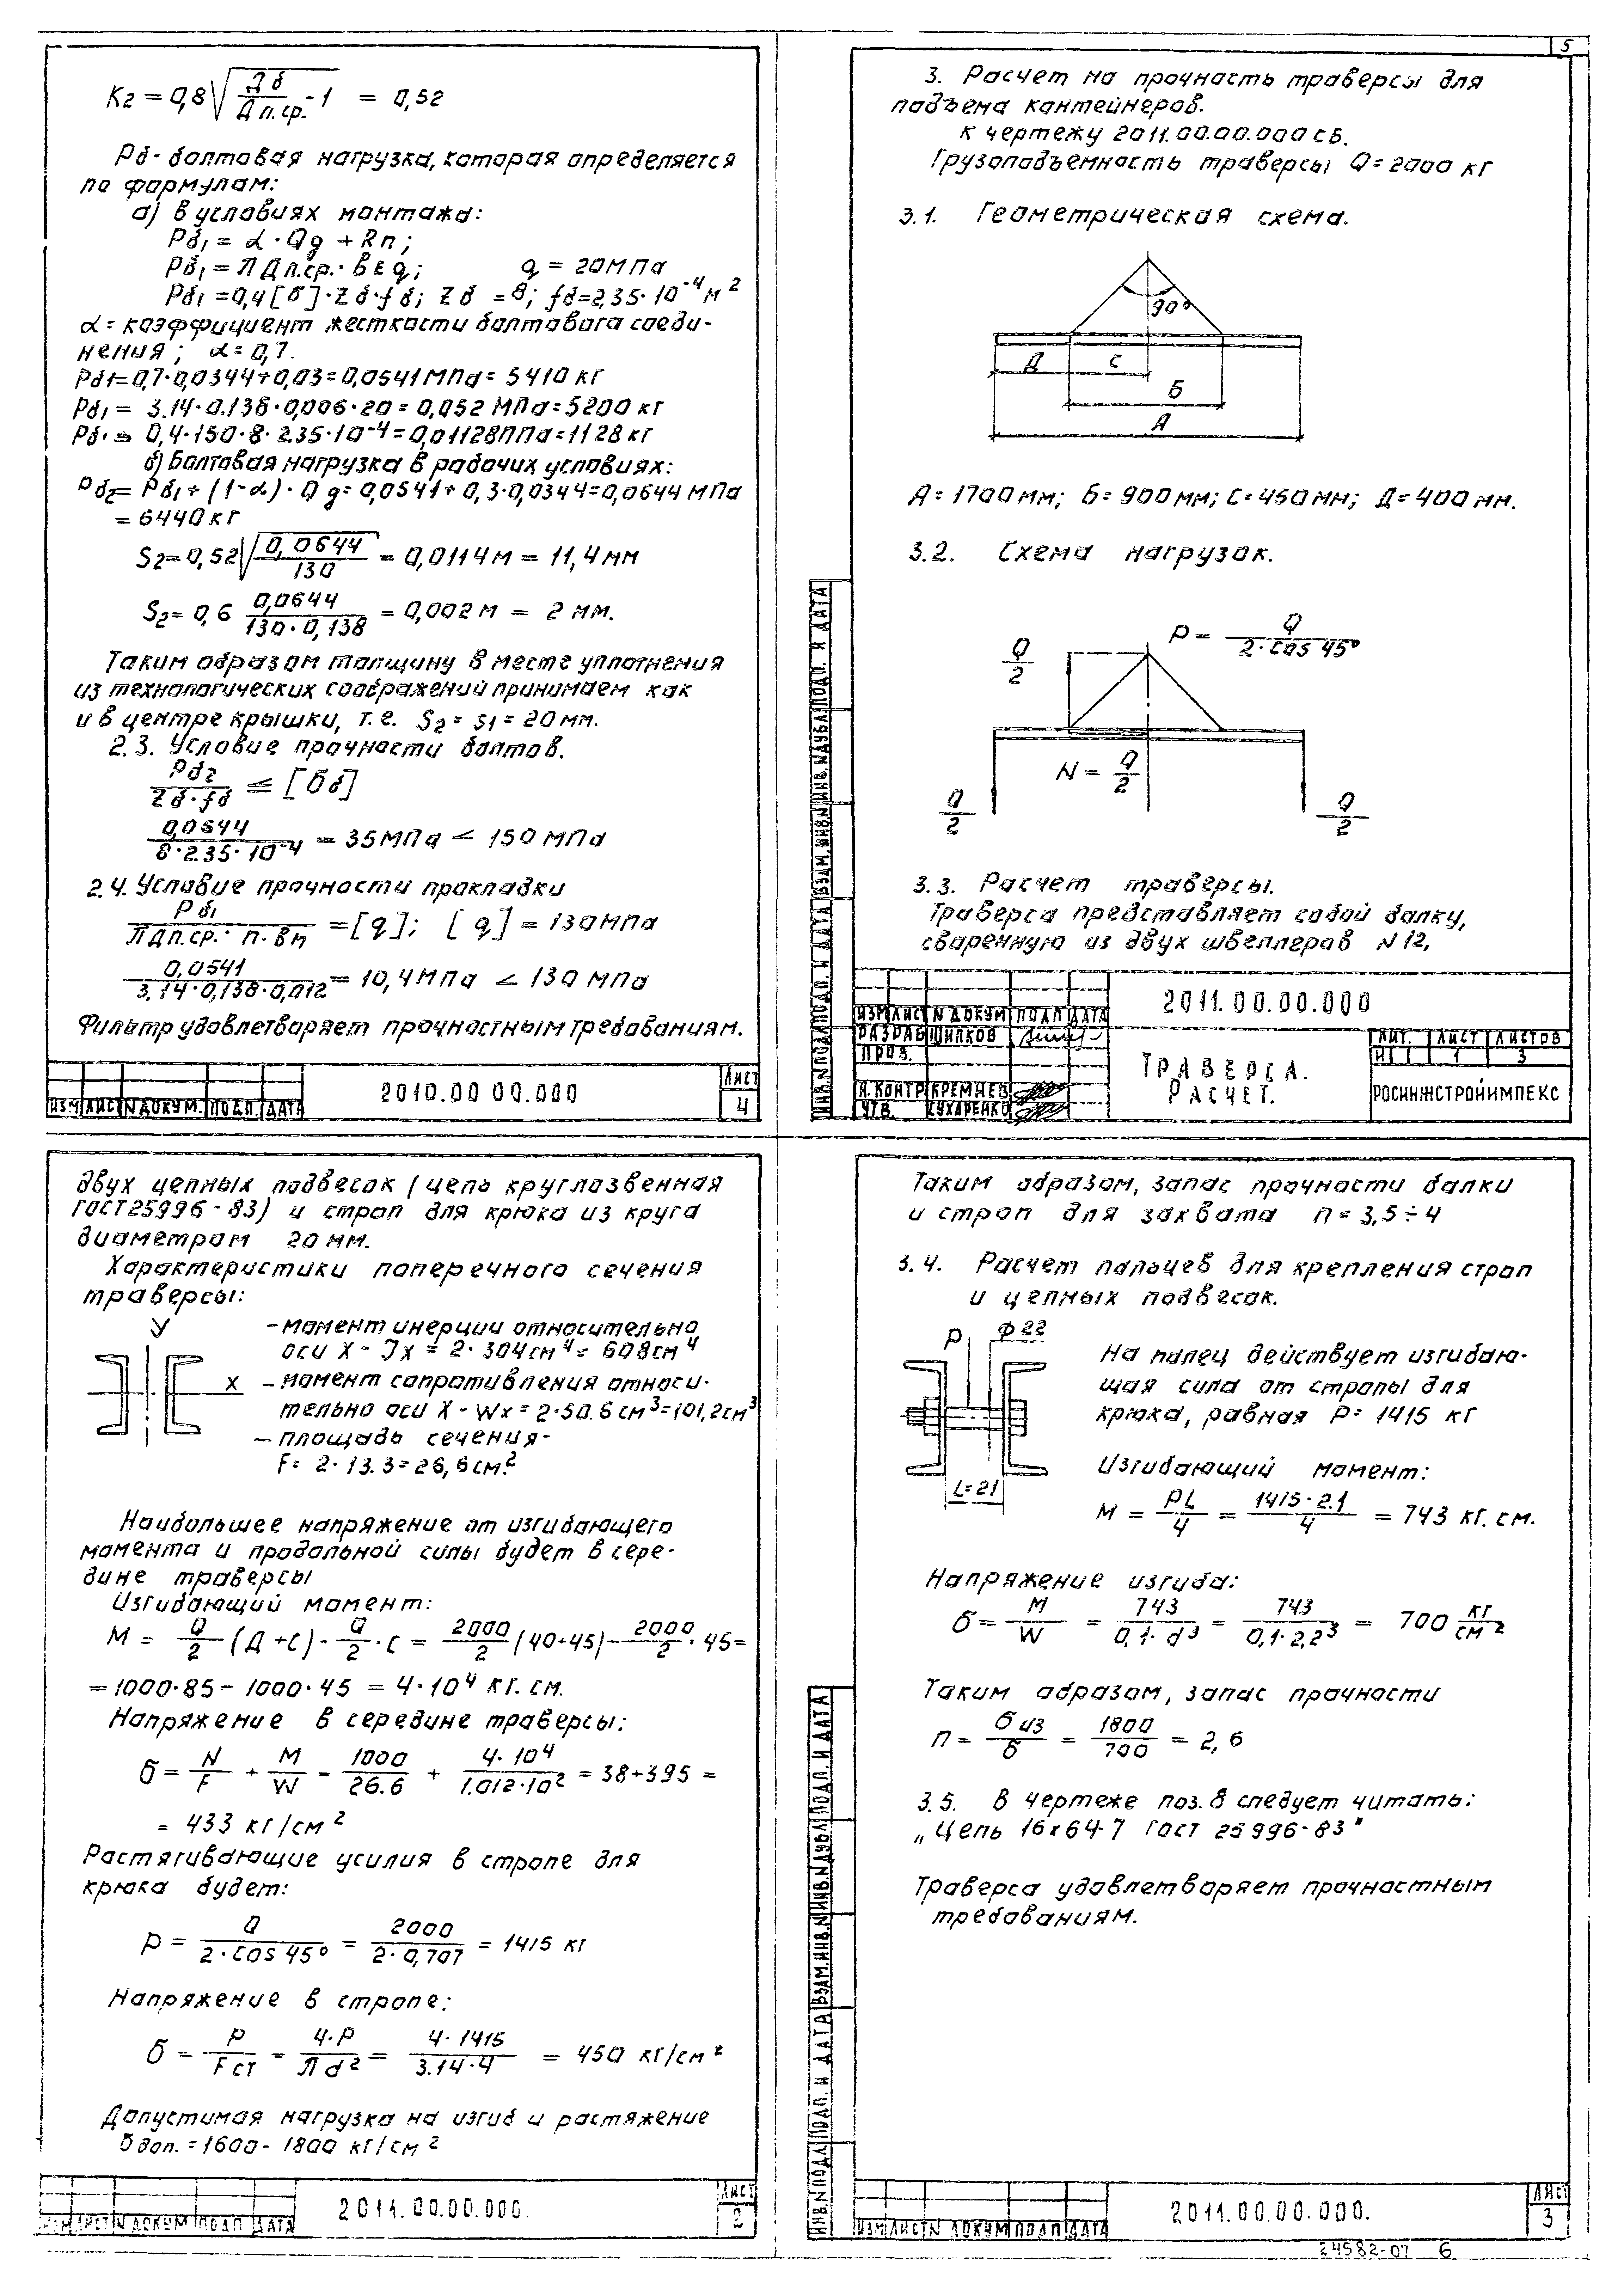 5
K₂ = 0,8 √(Дб / Дп.ср. - 1) = 0,52
Рб - болтовая нагрузка, которая определяется
по формулам:
а) в условиях монтажа:
Рб₁ = α · Qg + Rп;
Рб₁ = π Дп.ср. · вεq; q = 20 МПа
Рб₁ = 0,4 [б] · Zб · fб; Zб = 8; fб = 2,35 · 10⁻⁴ м²
α = коэффициент жесткости болтового соеди-
нения; α = 0,7.
Рб1 = 0,7 · 0,0344 + 0,03 = 0,0541 МПа = 5410 кг
Рб₁ = 3.14 · 0.138 · 0,006 · 20 = 0,052 МПа = 5200 кг
Рб₁ = 0,4 · 150 · 8 · 2.35 · 10⁻⁴ = 0,01128 МПа = 1128 кг
б) Болтовая нагрузка в рабочих условиях:
Рб₂ = Рб₁ + (1-α) · Qg = 0,0541 + 0,3 · 0,0344 = 0,0644 МПа
= 6440 кг
S₂ = 0,52 √(0,0644 / 130) = 0,0114 м = 11,4 мм
S₂ = 0,6 0,0644 / 130 · 0,138 = 0,002 м = 2 мм.
Таким образом толщину в месте уплотнения
из технологических соображений принимаем как
и в центре крышки, т.е. S₂ = S₁ = 20 мм.
2.3. Условие прочности болтов.
Рб₂ / Zб · fб ≤ [бб]
0,0644 / 8 · 2.35 · 10⁻⁴ = 35 МПа < 150 МПа
2.4. Условие прочности прокладки
Рб₁ / π Дп.ср. · п · вп = [q]; [q] = 130 МПа
0,0541 / 3,14 · 0,138 · 0,012 = 10,4 МПа < 130 МПа
Фильтр удовлетворяет прочностным требованиям.
ИЗМ ЛИСТ N ДОКУМ. ПОДП. ДАТА
2010.00 00.000
ЛИСТ
4
3. Расчет на прочность траверсы для
подъема контейнеров.
к чертежу 2011.00.00.000 СБ.
Грузоподъемность траверсы Q = 2000 кг
3.1. Геометрическая схема.
90°
Д С
Б
А
А = 1700 мм; Б = 900 мм; С = 450 мм; Д = 400 мм.
3.2. Схема нагрузок.
Q/2
P = Q / 2 · cos 45°
N = Q/2
Q/2
Q/2
3.3. Расчет траверсы.
Траверса представляет собой балку,
сваренную из двух швеллеров N 12,
ИНВ.N ПОДЛ ПОДП. И ДАТА ВЗАМ.ИНВ.N ИНВ.N ДУБЛ ПОДП. И ДАТА
ИЗМ ЛИСТ N ДОКУМ ПОДП ДАТА
РАЗРАБ ШИПКОВ
ПРОВ.
Н.КОНТР КРЕМНЕВ
УТВ. СУХАРЕНКО
2011.00.00.000
ТРАВЕРСА.
РАСЧЕТ.
ЛИТ. ЛИСТ ЛИСТОВ
И 1 3
РОСИНЖСТРОЙИМПЕКС
двух цепных подвесок (цепь круглозвенная
ГОСТ 25996-83) и строп для крюка из круга
диаметром 20 мм.
Характеристики поперечного сечения
траверсы:
У
Х
- момент инерции относительно
оси Х - Jx = 2 · 304 см⁴ = 608 см⁴
- момент сопротивления относи-
тельно оси Х - Wx = 2 · 50.6 см³ = 101,2 см³
- площадь сечения -
F = 2 · 13.3 = 26,6 см².
Наибольшее напряжение от изгибающего
момента и продольной силы будет в сере-
дине траверсы
Изгибающий момент:
M = Q/2 (Д + С) - Q/2 · С = 2000/2 (40+45) - 2000/2 · 45 =
= 1000 · 85 - 1000 · 45 = 4 · 10⁴ кг. см.
Напряжение в середине траверсы:
б = N/F + M/W = 1000/26.6 + 4 · 10⁴ / 1.012 · 10² = 38 + 395 =
= 433 кг/см²
Растягивающие усилия в стропе для
крюка будет:
P = Q / 2 · cos 45° = 2000 / 2 · 0,707 = 1415 кг
Напряжение в стропе:
б = P / Fст = 4 · P / π d² = 4 · 1415 / 3.14 · 4 = 450 кг/см²
Допустимая нагрузка на изгиб и растяжение
б доп. = 1600 - 1800 кг/см²
ИЗМ ЛИСТ N ДОКУМ ПОДП ДАТА
2011.00.00.000.
ЛИСТ
2
Таким образом, запас прочности балки
и строп для захвата п = 3,5 ÷ 4
3.4. Расчет пальцев для крепления строп
и цепных подвесок.
P
Ф 22
L = 21
На палец действует изгибаю-
щая сила от стропы для
крюка, равная P = 1415 кг
Изгибающий момент:
M = PL / 4 = 1415 · 2.1 / 4 = 743 кг. см.
Напряжение изгиба:
б = M / W = 743 / 0,1 · d³ = 743 / 0,1 · 2,2³ = 700 кг/см²
Таким образом, запас прочности
п = б из / б = 1800 / 700 = 2,6
3.5. В чертеже поз. 8 следует читать:
„Цепь 16х64-7 ГОСТ 25996-83"
Траверса удовлетворяет прочностным
требованиям.
ИНВ.N ПОДЛ ПОДП. И ДАТА ВЗАМ.ИНВ.N ИНВ.N ДУБЛ ПОДП. И ДАТА
ИЗМ ЛИСТ N ДОКУМ ПОДП ДАТА
2011.00.00.000.
ЛИСТ
3
24582-07 6